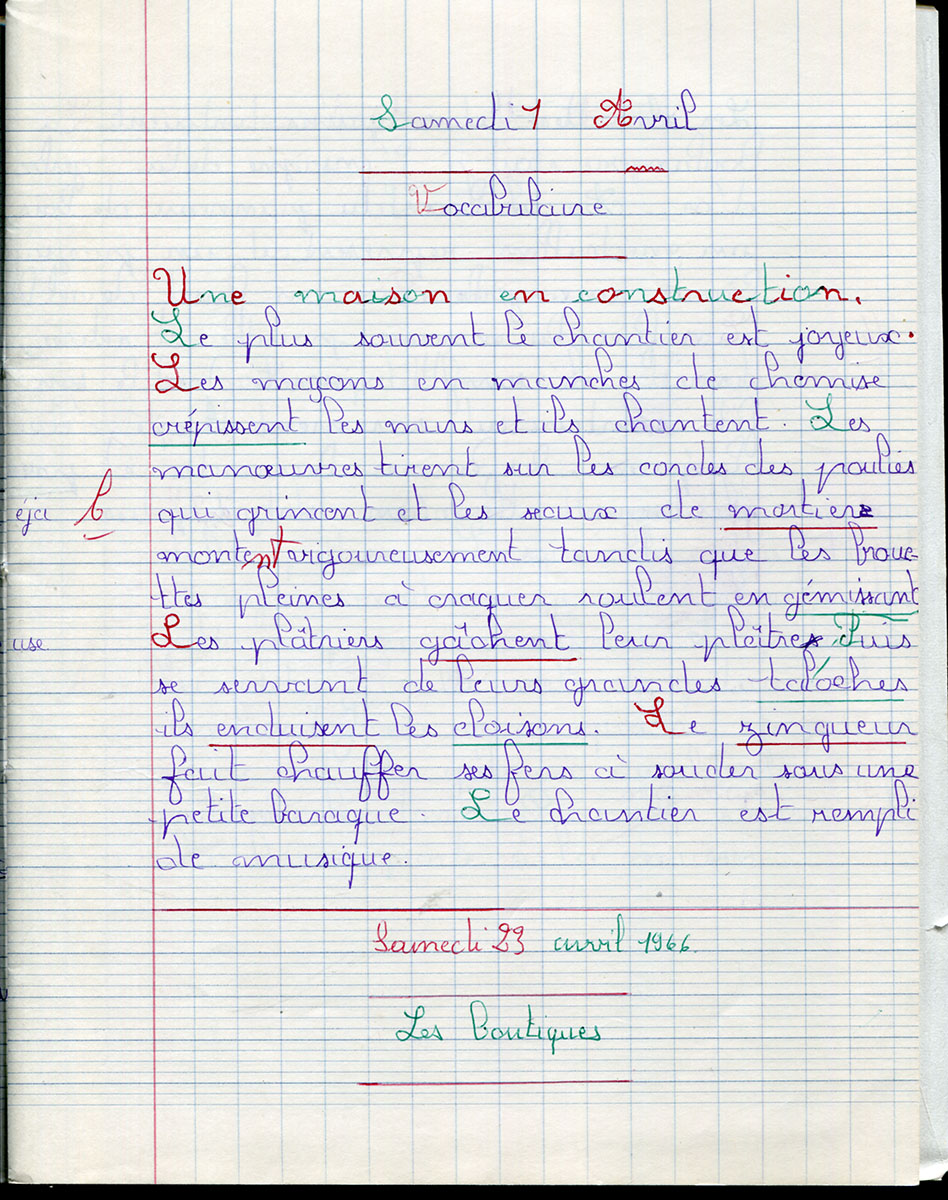 Samedi 1 Avril
Vocabulaire
Une maison en construction.
Le plus souvent le chantier est joyeux.
Les maçons en manches de chemise
crépissent les murs et ils chantent. Les
manœuvres tirent sur les cordes des poulies
éja B qui grincent et les seaux de mortier
montent vigoureusement tandis que les broue-
ttes pleines à craquer roulent en gémissant
use Les plâtriers gâchent leur plâtre. Puis
se servant de leurs grandes taloches
ils enduisent les cloisons. Le zingueur
fait chauffer ses fers à souder sous une
petite baraque. Le chantier est rempli
de musique.
Samedi 23 avril 1966.
Les boutiques